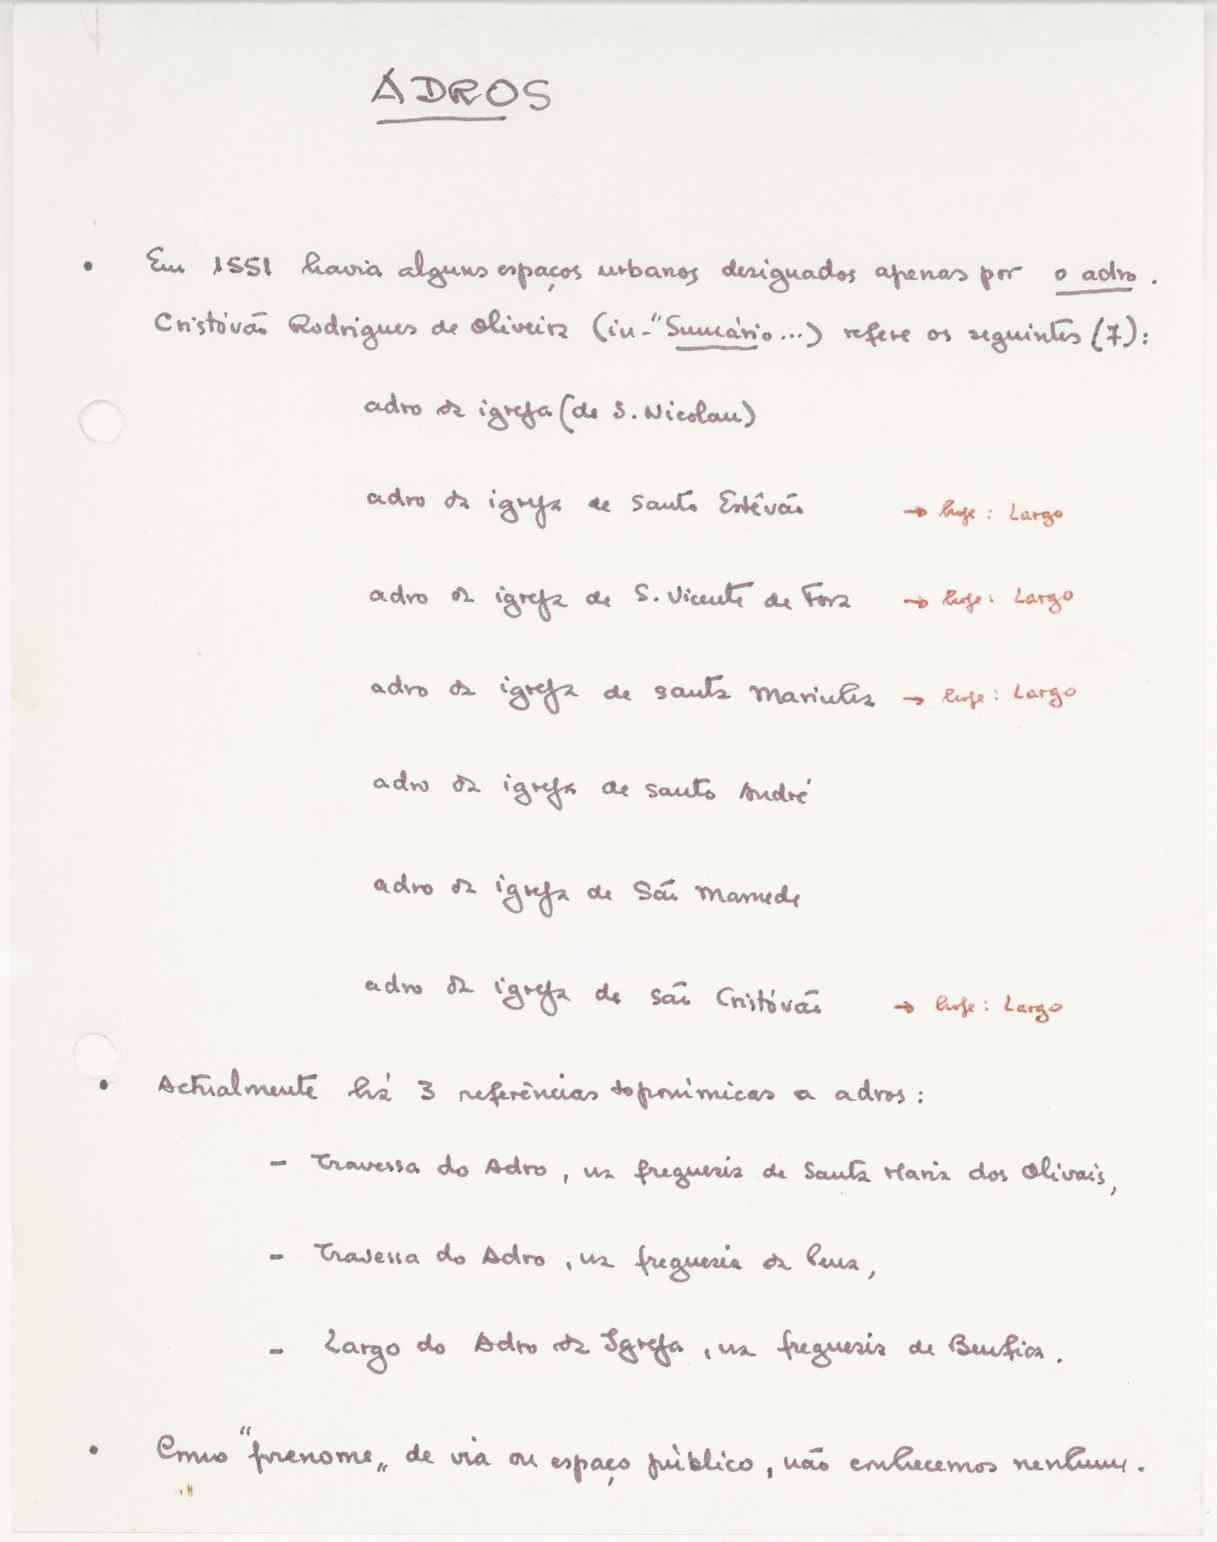 ADROS
• Em 1551 havia alguns espaços urbanos designados apenas por o adro.
Cristóvão Rodrigues de Oliveira (in-"Sumário...) refere os seguintes (7):
adro da igreja (de S. Nicolau)
adro da igreja de Santo Estêvão → hoje: Largo
adro da igreja de S. Vicente de Fora → hoje: Largo
adro da igreja de Santa Marinha → hoje: Largo
adro da igreja de Santo André
adro da igreja de São Mamede
adro da igreja de São Cristóvão → hoje: Largo
• Actualmente há 3 referências toponímicas a adros:
- Travessa do Adro, na freguesia de Santa Maria dos Olivais,
- Travessa do Adro, na freguesia da Pena,
- Largo do Adro da Igreja, na freguesia de Benfica.
• Como "prenome" de via ou espaço público, não conhecemos nenhum.